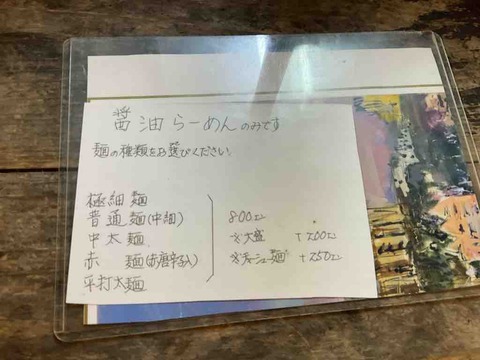 醤油らーめんのみです
麺の種類をお選びください
極細麺
普通麺(中細) 800円
中太麺 ※大盛 +200円
赤麺(赤唐辛子入) ※チャーシュー麺 +250円
平打太麺